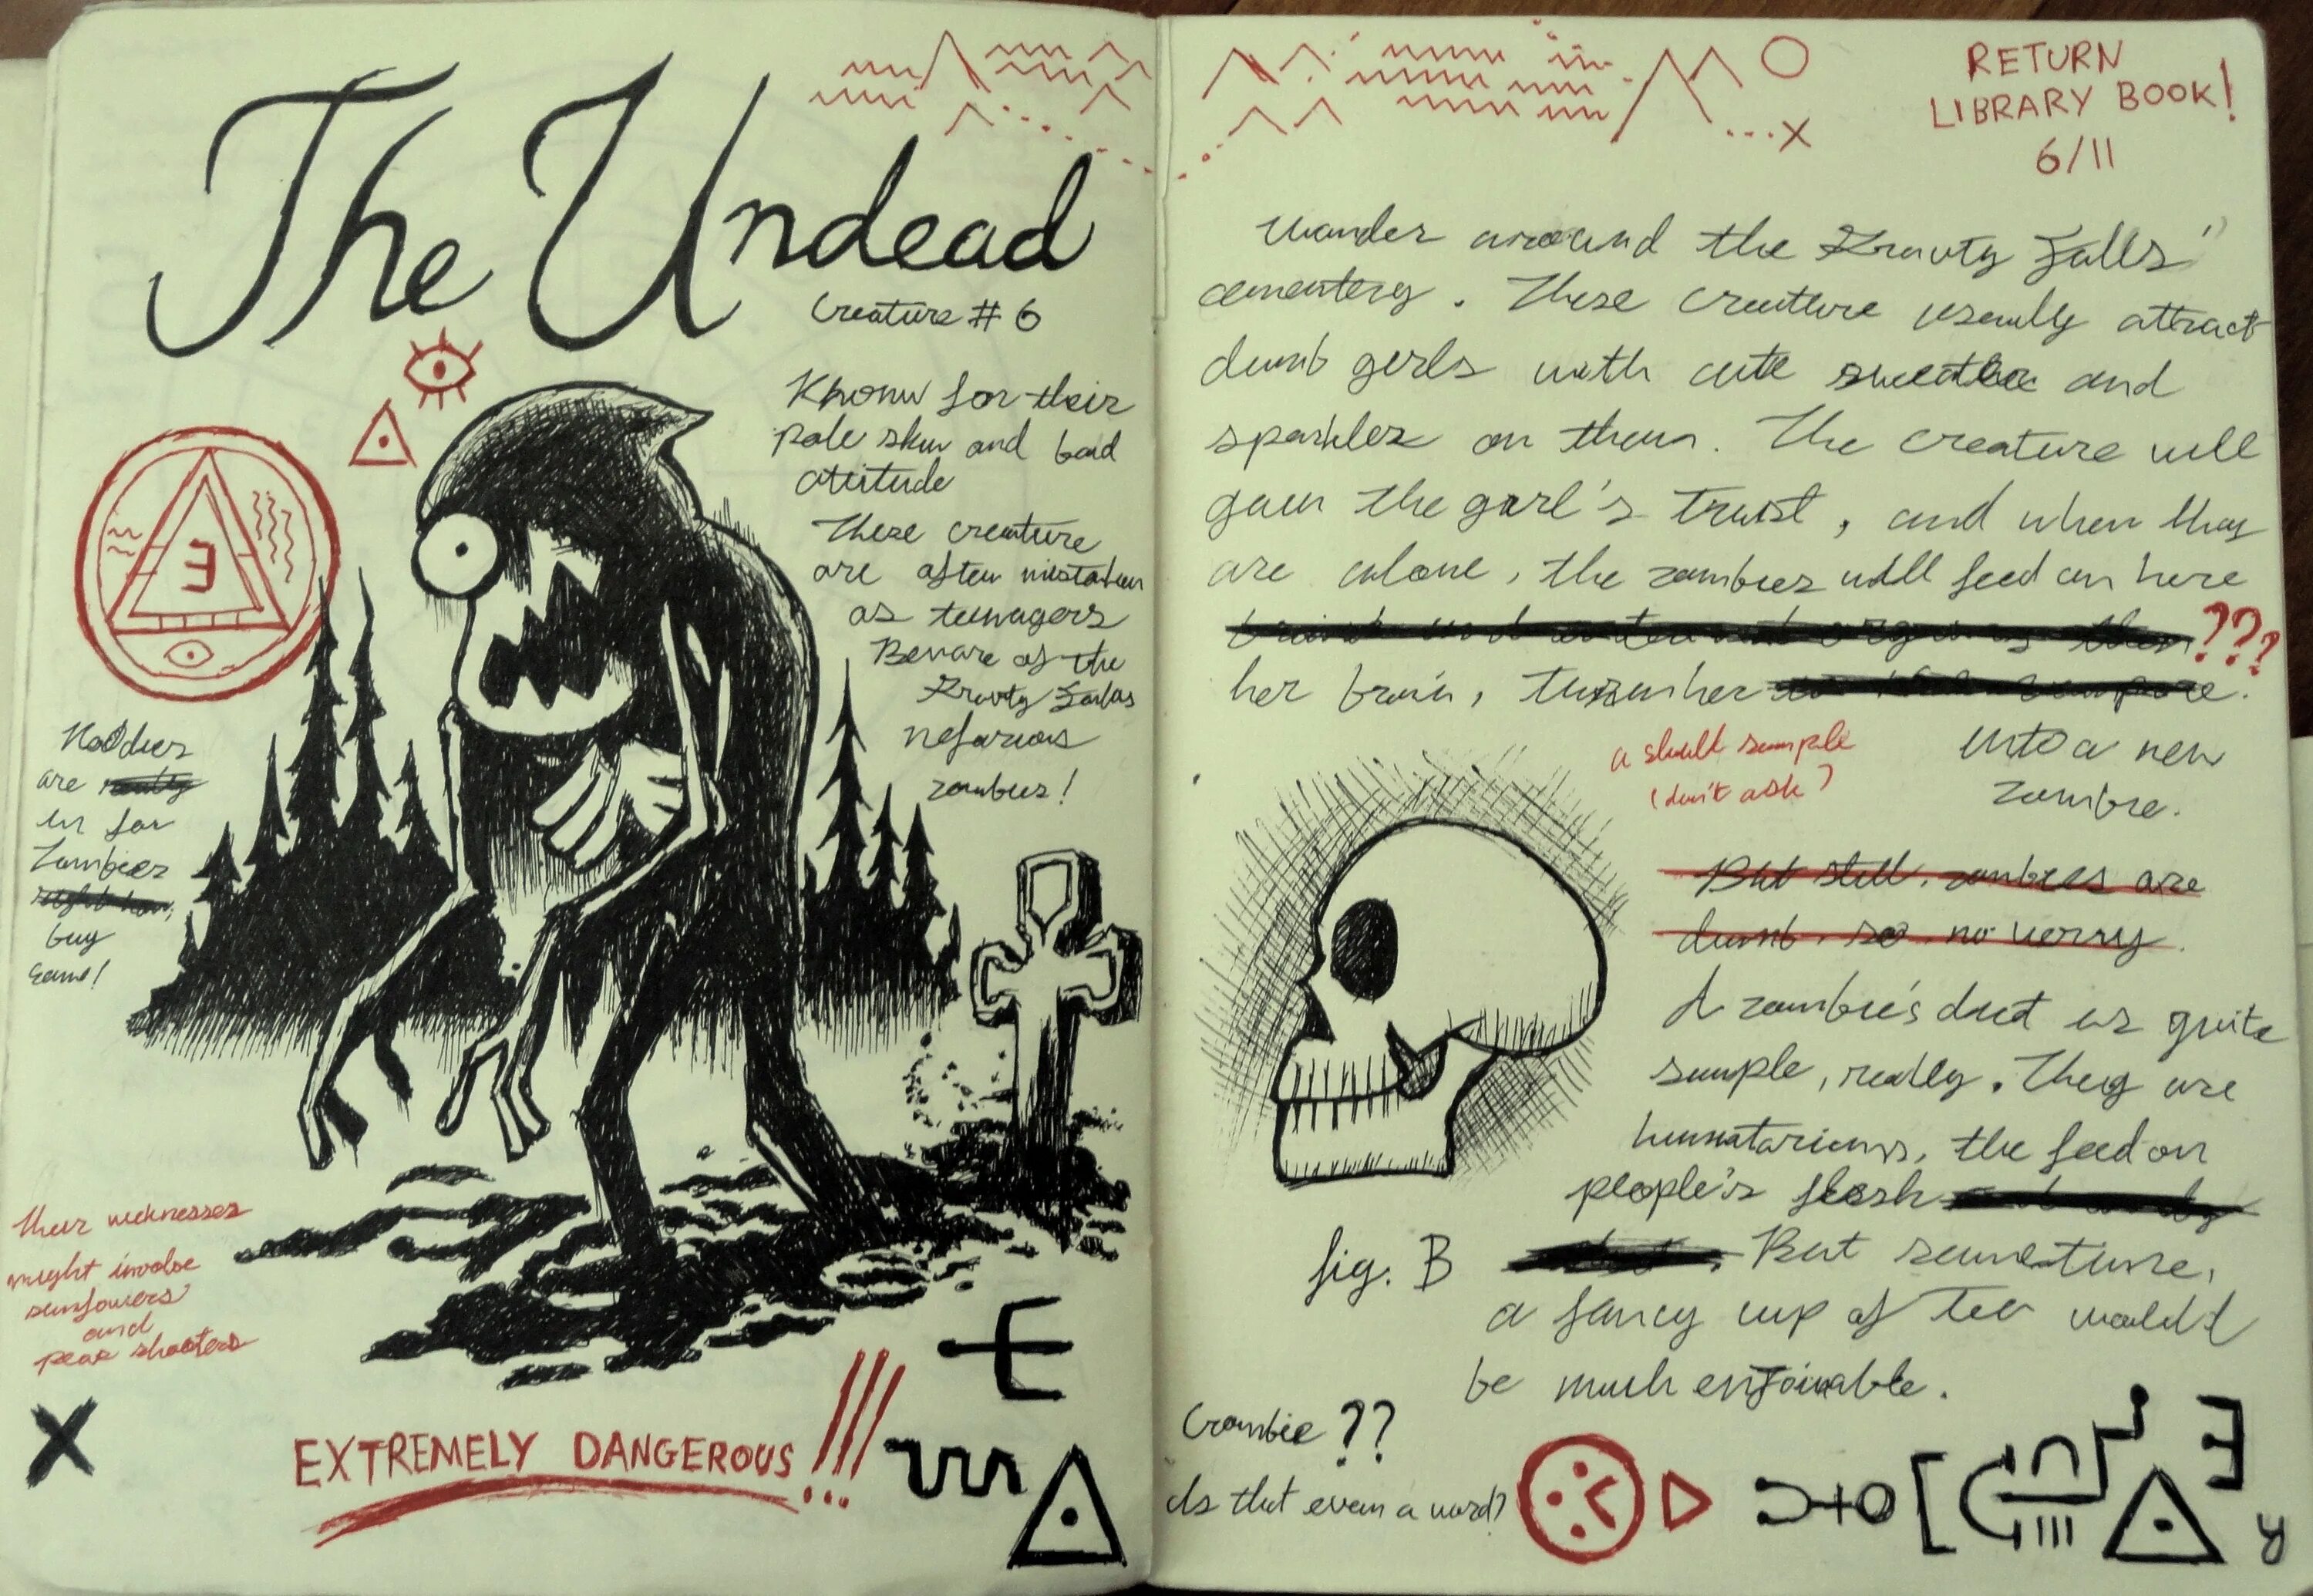 The Undead
Creature # 6
Known for their
pale skin and bad
attitude
These creature
are often mistaken
as teenagers
Beware of the
Gravity Falls
nefarious
zombies!
Hoodies
are really
in for
Zombies
right now,
buy
same!
Their weknesses
might involve
sunfowers
and
peas shooters
X
EXTREMELY DANGEROUS!!!
RETURN
LIBRARY BOOK!
6/11
wander around the Gravity Falls'
cementery. These creature usually attract
dumb girls with cute sweater and
sparkles on them. The creature will
gain the girl's trust, and when they
are alone, the zombies will feed on here
???
her brain, turn her
into a new
zombie.
a skull sample
(don't ask)
But still, zombies are
dumb. so no worry.
A zombie's diet is quite
simple, really. They are
humatarians, the feed on
people's flesh
But sometime,
a fancy cup of tea would
be much enjoiable.
fig. B
Crombie??
Is that even a word?